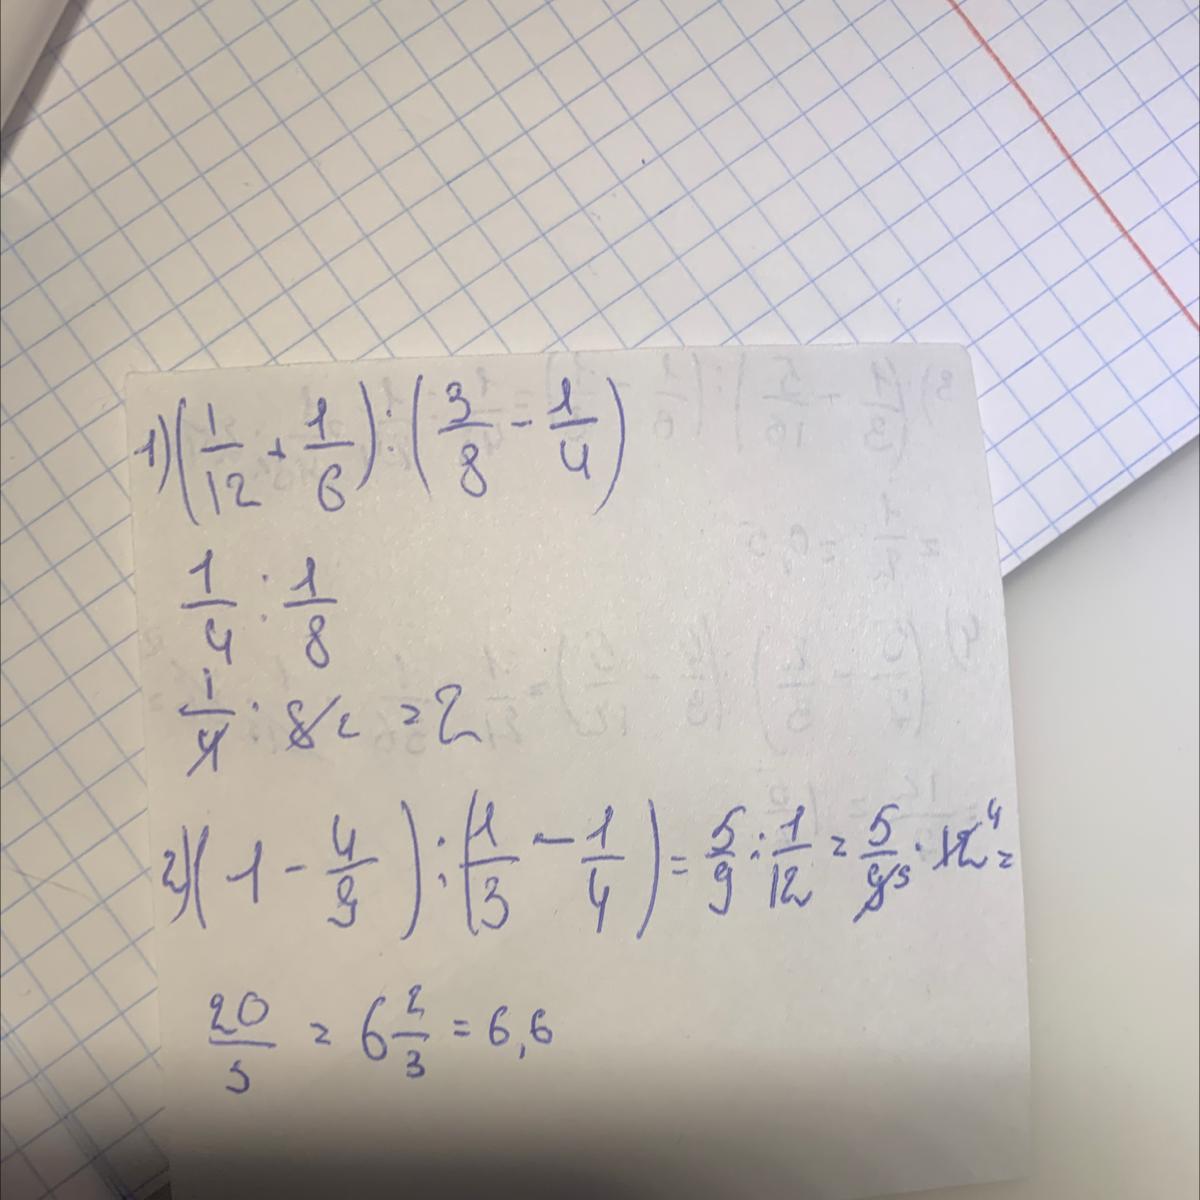 1) (1/12 + 1/6) : (3/8 - 1/4)
1/4 : 1/8
1/4 · 8 2 = 2
2) (1 - 4/9) : (1/3 - 1/4) = 5/9 : 1/12 = 5/9 3 · 12 4 =
20/3 = 6 2/3 = 6,6